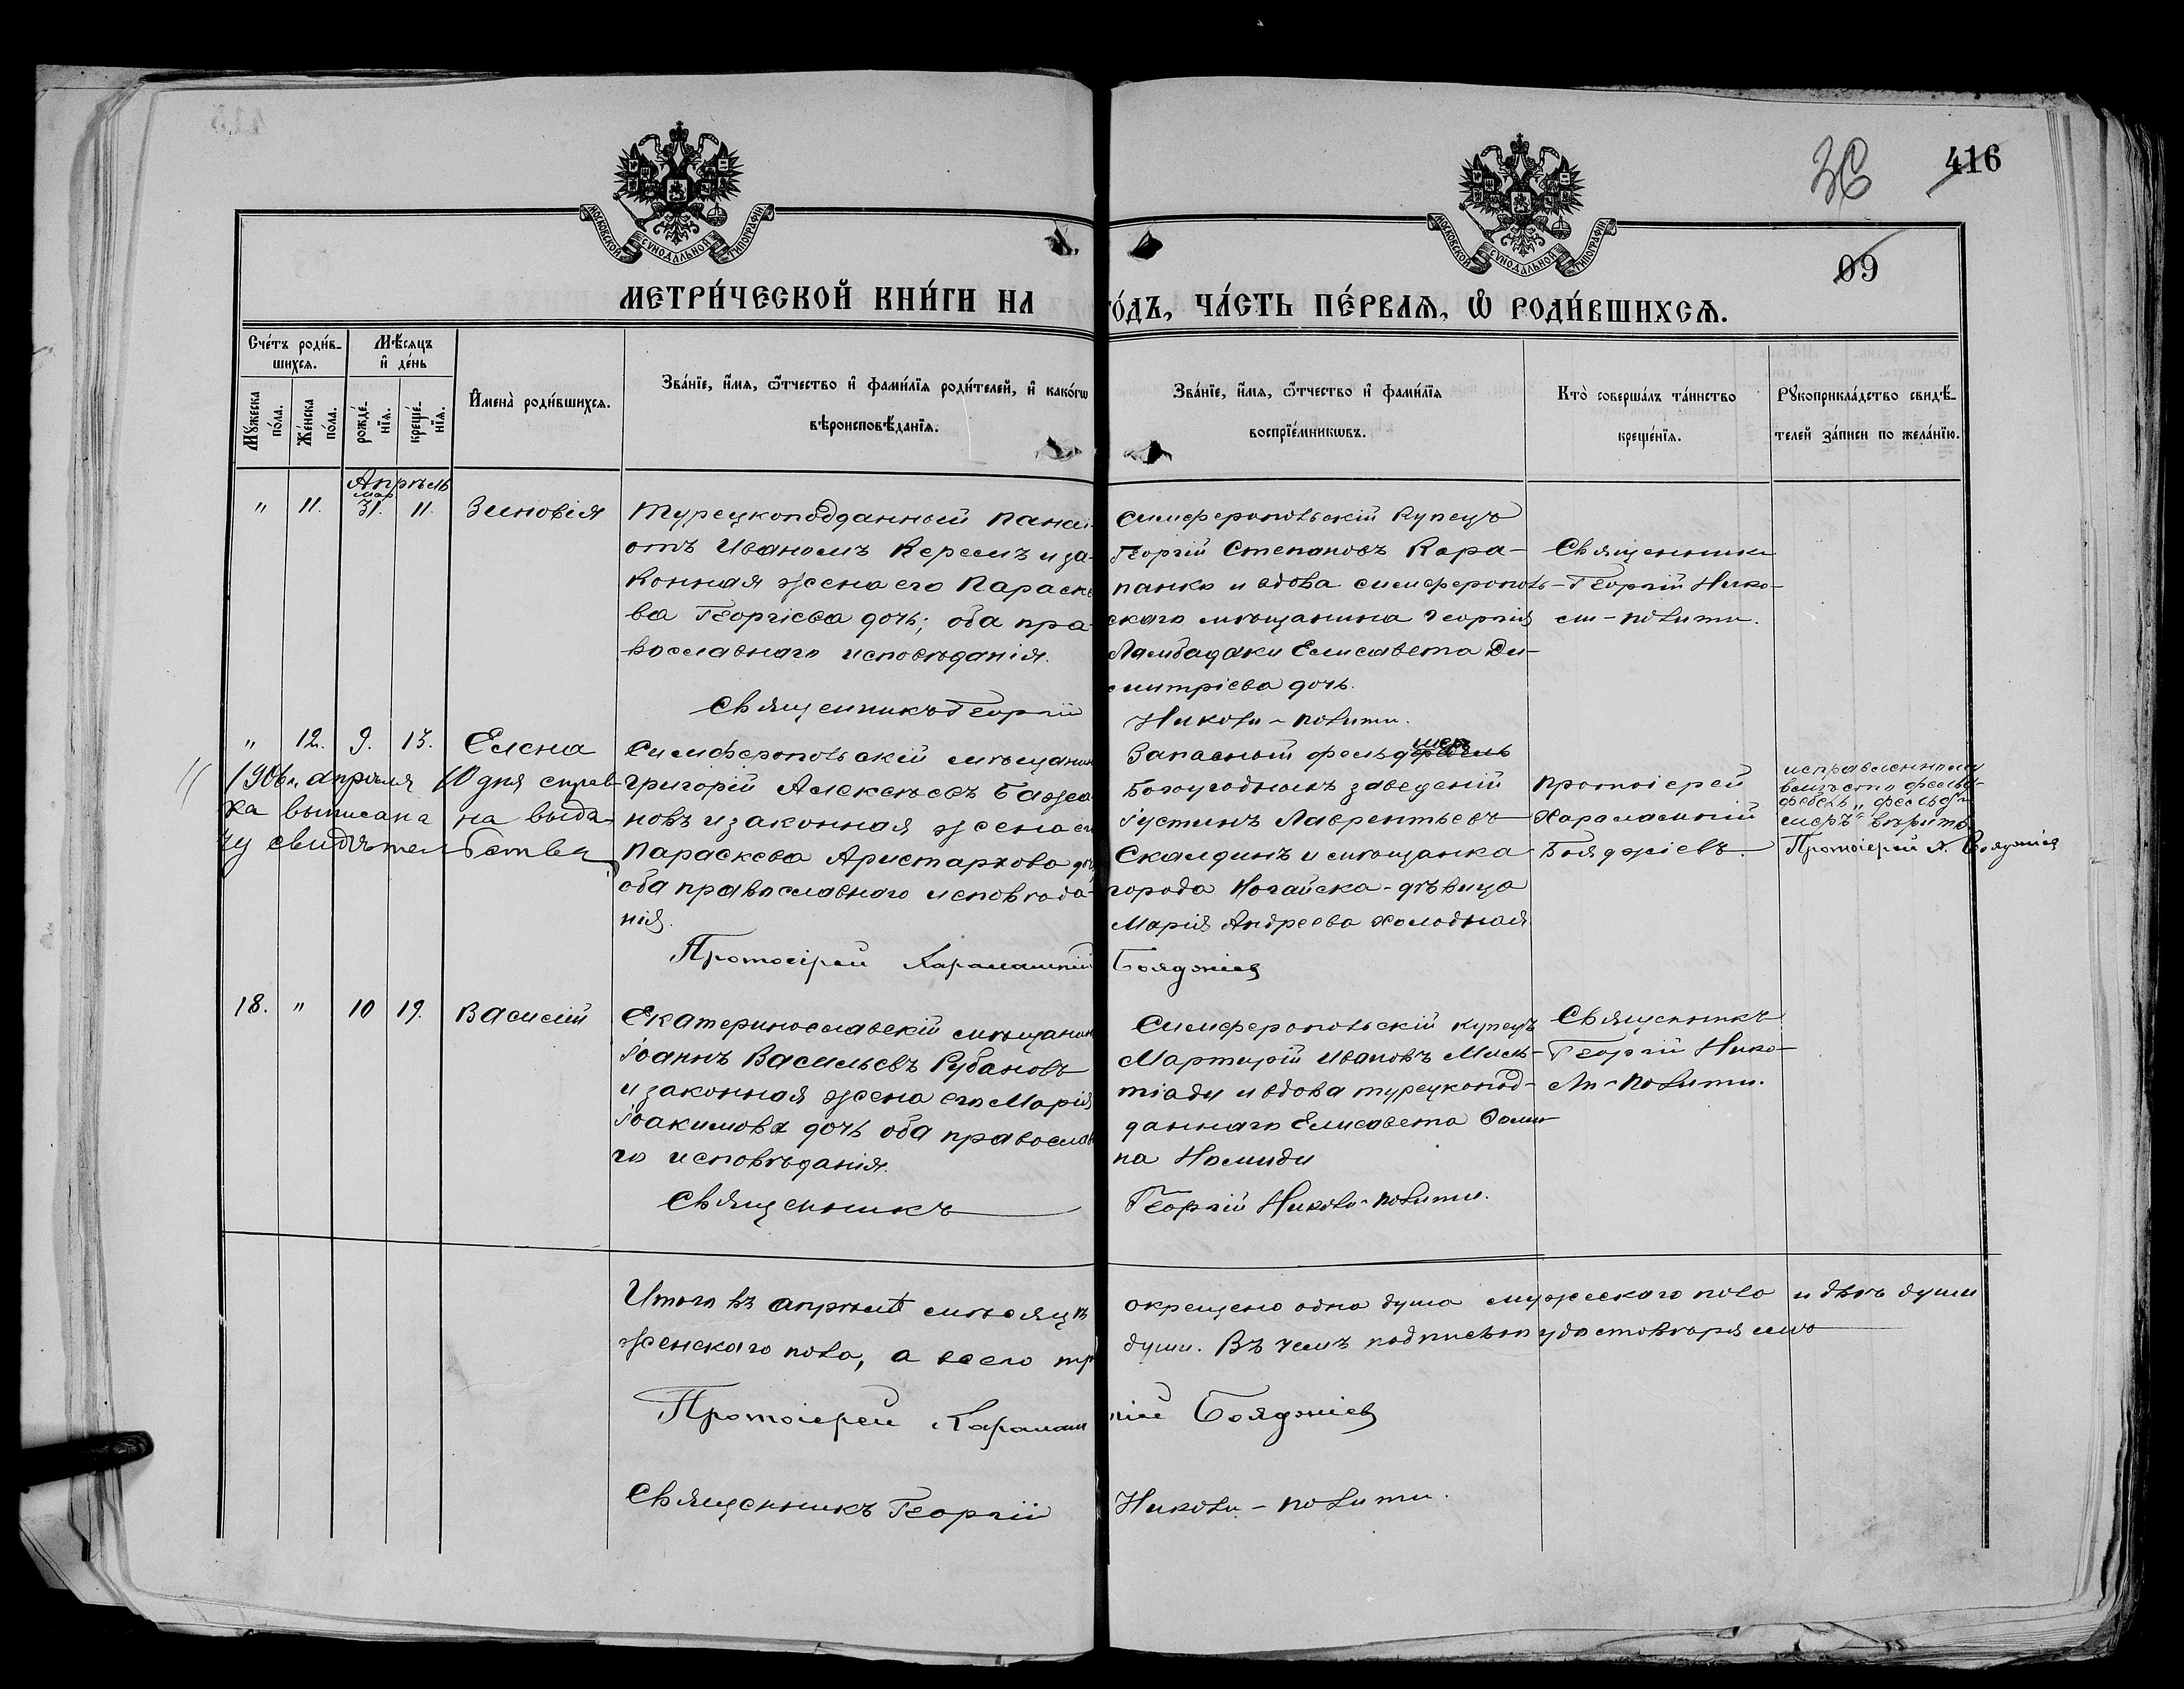 416
36
09
МОСКОВСКОЙ СѴНОДАЛЬНОЙ ТИПОГРАФІИ
МОСКОВСКОЙ СѴНОДАЛЬНОЙ ТИПОГРАФІИ
МЕТРИ́ЧЕСКОЙ КНИ́ГИ НА
ГО́ДЪ, ЧА́СТЬ ПЕ́РВАѦ, Ѡ҆ РОДИ́ВШИХСѦ.
Сче́тъ роди́в-
шихсѧ.
Мѣ́сѧцъ
и҆ де́нь
Мꙋ́жеска по́ла.
Же́нска по́ла.
рожде́-
нїѧ.
креще́-
нїѧ.
И҆мена̀ роди́вшихсѧ.
Зва́нїе, и҆́мѧ, ѻ҆́тчество и҆ фами́лїѧ роди́телей, и҆ како́гѡ
вѣроисповѣ́данїѧ.
Зва́нїе, и҆́мѧ, ѻ҆́тчество и҆ фами́лїѧ
воспрїе́мникѡвъ.
Кто̀ соверша́лъ та́инство
креще́нїѧ.
Рꙋкоприкла́дство свидѣ́-
телей за́писи по жела́нїю.
Апрѣль
мар.
" 11. 31. 11. Зиновія
Турецкоподданный Панаі-
отъ Ивановъ Керемъ и за-
конная жена его Параске
ва Георгіева дочь; оба пра-
вославнаго исповѣданія.
Священникъ Георгій
Симферопольскій Купецъ
Георгій Степановъ Кара-
панко и вдова симферополь-
скаго мѣщанина Георгія
Ламбадаки Елисавета Ди-
митріева дочь.
Николи-Полити.
Священникъ
Георгій Нико-
ли-Полити.
" 12. 9. 13. Елена
1906 г. апрѣля 10 дня справ-
ка выписана на выда-
чу свидѣтельства
Симферопольскій мѣщанин
Григорій Алексѣевъ Бажа-
новъ и законная жена его
Параскева Аристархова доч
оба православнаго исповѣда-
нія.
Протоіерей Харалампій
шеръ
Запасный фельдфебель
Богоугодныхъ заведеній
Іустинъ Лаврентьевъ
Скалдинъ и мѣщанка
города Ногайска-дѣвица
Марія Андреева Холодная
Бояджіев
Протоіерей
Харалампій
Бояджіевъ.
исправленному
вмѣсто фельд-
фебель „фельд-
шеръ“ вѣрить
Протоіерей Х. Бояджіев
18. " 10 19. Василій
Екатеринославскій мѣщанин
Іоаннъ Васильевъ Рубановъ
и законная жена его Марія
Іоакимова дочь оба православ
го исповѣданія.
Священникъ
Симферопольскій купецъ
Мартирій Ивановъ Миль-
тіади и вдова турецкопод-
даннаго Елисавета Ѳоми-
на Номиди
Георгій Николи-Полити.
Священникъ
Георгій Нико-
ли-Полити.
Итого въ апрѣлѣ мѣсяцѣ
окрещено одна душа мужескаго пола и двѣ души
женскаго пола, а всего тр
души. Въ чемъ подписью удостовѣряемъ
Протоіерей Харалам
пій Бояджіев
Священникъ Георгій
Николи-Полити.